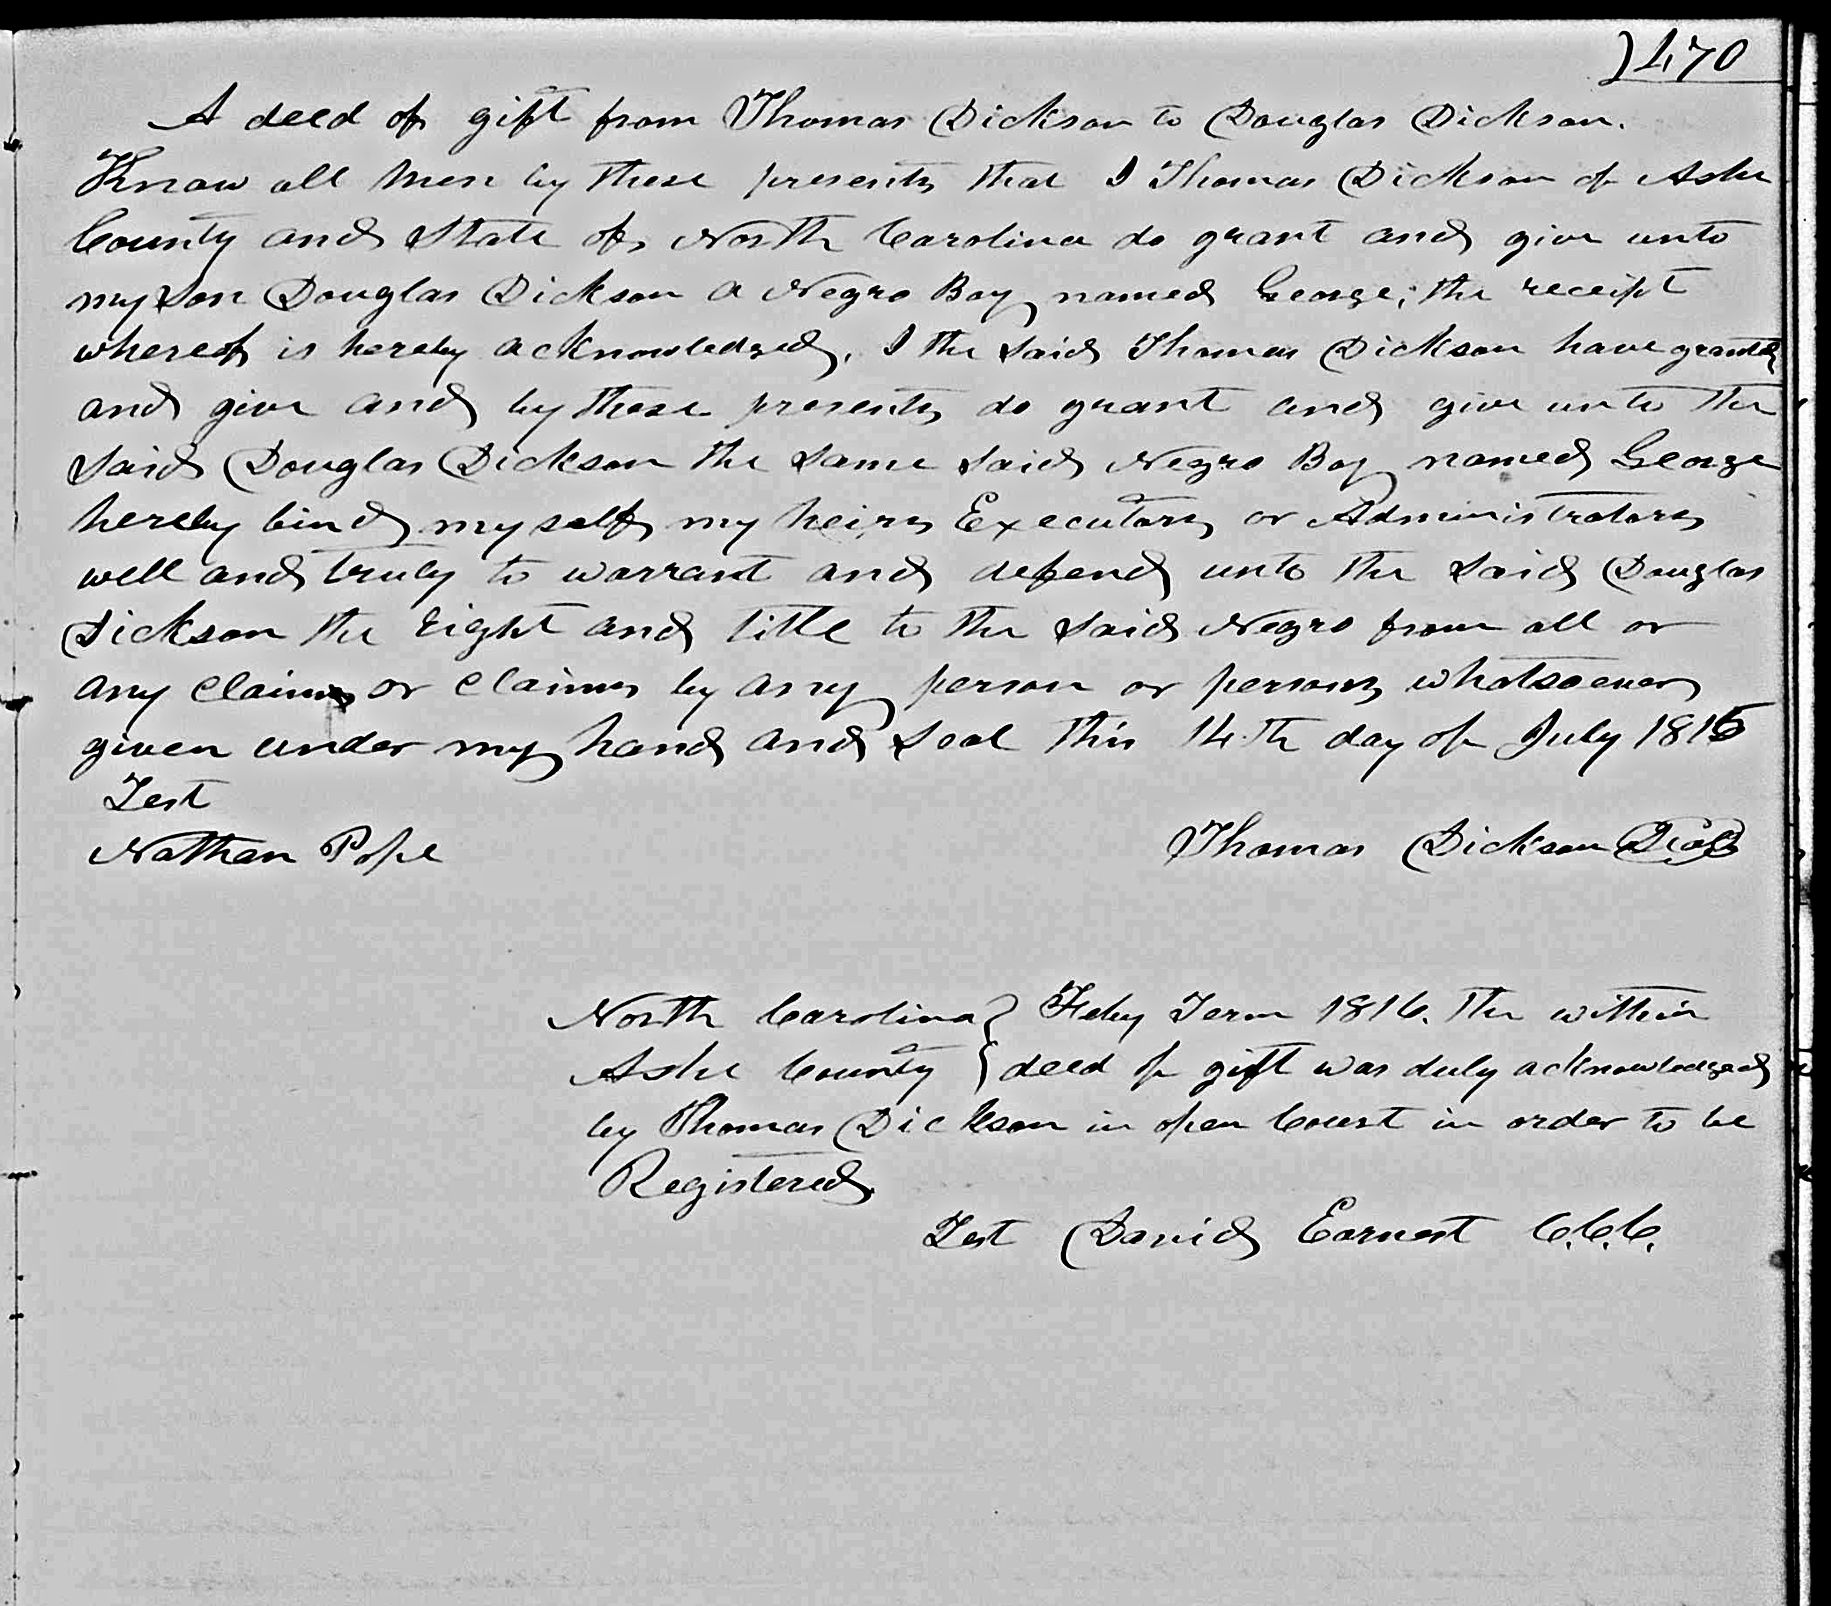 470
A deed of gift from Thomas Dickson to Douglas Dickson.
Know all men by these presents that I Thomas Dickson of Ashe
County and State of North Carolina do grant and give unto
my son Douglas Dickson a Negro Boy named George; the receipt
whereof is hereby acknowledged, I the said Thomas Dickson have granted
and give and by these presents do grant and give unto the
said Douglas Dickson the same said Negro Boy named George
hereby bind myself my heirs Executors or Administrators
well and truly to warrant and defend unto the said Douglas
Dickson the right and title to the said Negro from all or
any claims or claims by any person or persons whatsoever
given under my hand and seal this 14th day of July 1815
Test
Nathan Pope Thomas Dickson Seal
North Carolina } Feby Term 1816. The within
Ashe County } deed of gift was duly acknowledged
by Thomas Dickson in open Court in order to be
Registered.
Test David Earnest C.C.C.